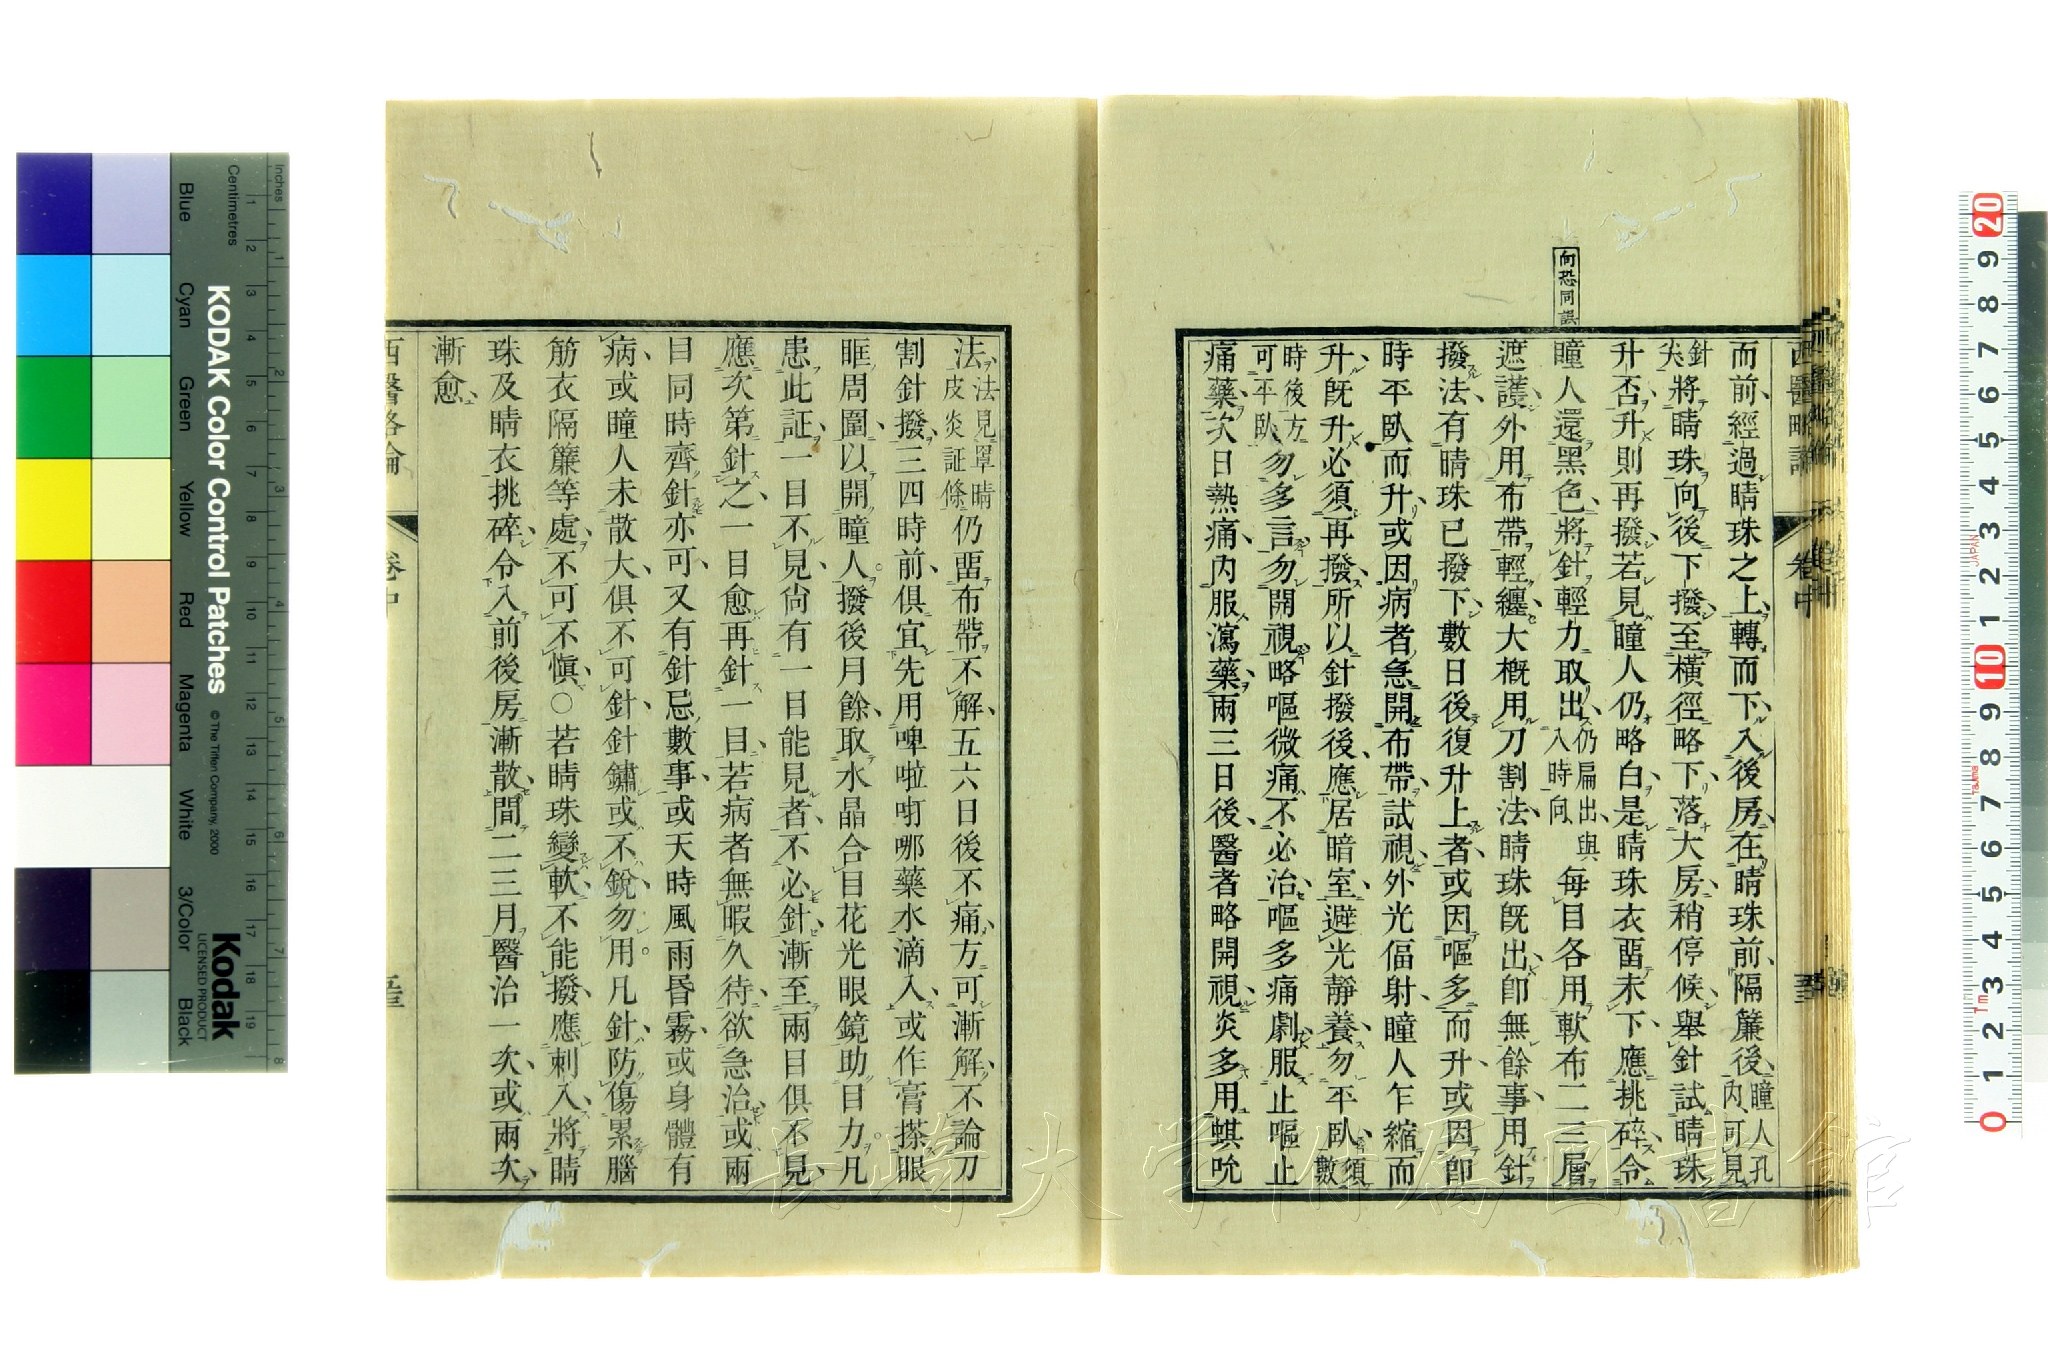 西醫略論
卷中
向恐同誤
而前經過睛珠之上轉而下入後房在睛珠前隔簾後瞳人孔內可見
針尖將睛珠向後下撥至橫徑略下落大房稍停候舉針試睛珠
升否升則再撥若見瞳人仍略白是睛珠衣畱未下應挑碎令
瞳人還黑色將針輕力取出仍扁出與入時向每目各用軟布二三層
遮護外用布帶輕纏大概用刀割法睛珠旣出卽無餘事用針
撥法有睛珠已撥下數日後復升上者或因嘔多而升或因卽
時平臥而升或因病者急開布帶試視外光偪射瞳人乍縮而
升旣升必須再撥所以針撥後應居暗室避光靜養勿平臥須數
時後方可平臥勿多言勿開視略嘔微痛不必治嘔多痛劇服止嘔止
痛藥次日熱痛內服瀉藥兩三日後醫者略開視炎多用蜞吮
法法見罩睛皮炎証條仍畱布帶不解五六日後不痛方可漸解不論刀
割針撥三四時前俱宜先用啤啦哱哪藥水滴入或作膏搽眼
眶周圍以開瞳人撥後月餘取水晶合目花光眼鏡助目力凡
患此証一目不見尙有一目能見者不必針漸至兩目俱不見
應次第針之一目愈再針一目若病者無暇久待欲急治或兩
目同時齊針亦可又有針忌數事或天時風雨昏霧或身體有
病或瞳人未散大俱不可針針鏽或不銳勿用凡針防傷累腦
筋衣隔簾等處不可不愼○若睛珠變軟不能撥應刺入將睛
珠及睛衣挑碎令入前後房漸散間二三月醫治一次或兩次
漸愈
西醫略論
卷中
KODAK Color Control Patches
© The Tiffen Company, 2000
Kodak
LICENSED PRODUCT
Blue
Cyan
Green
Yellow
Red
Magenta
White
3/Color
Black
Centimetres
Inches
長崎大学附属図書館